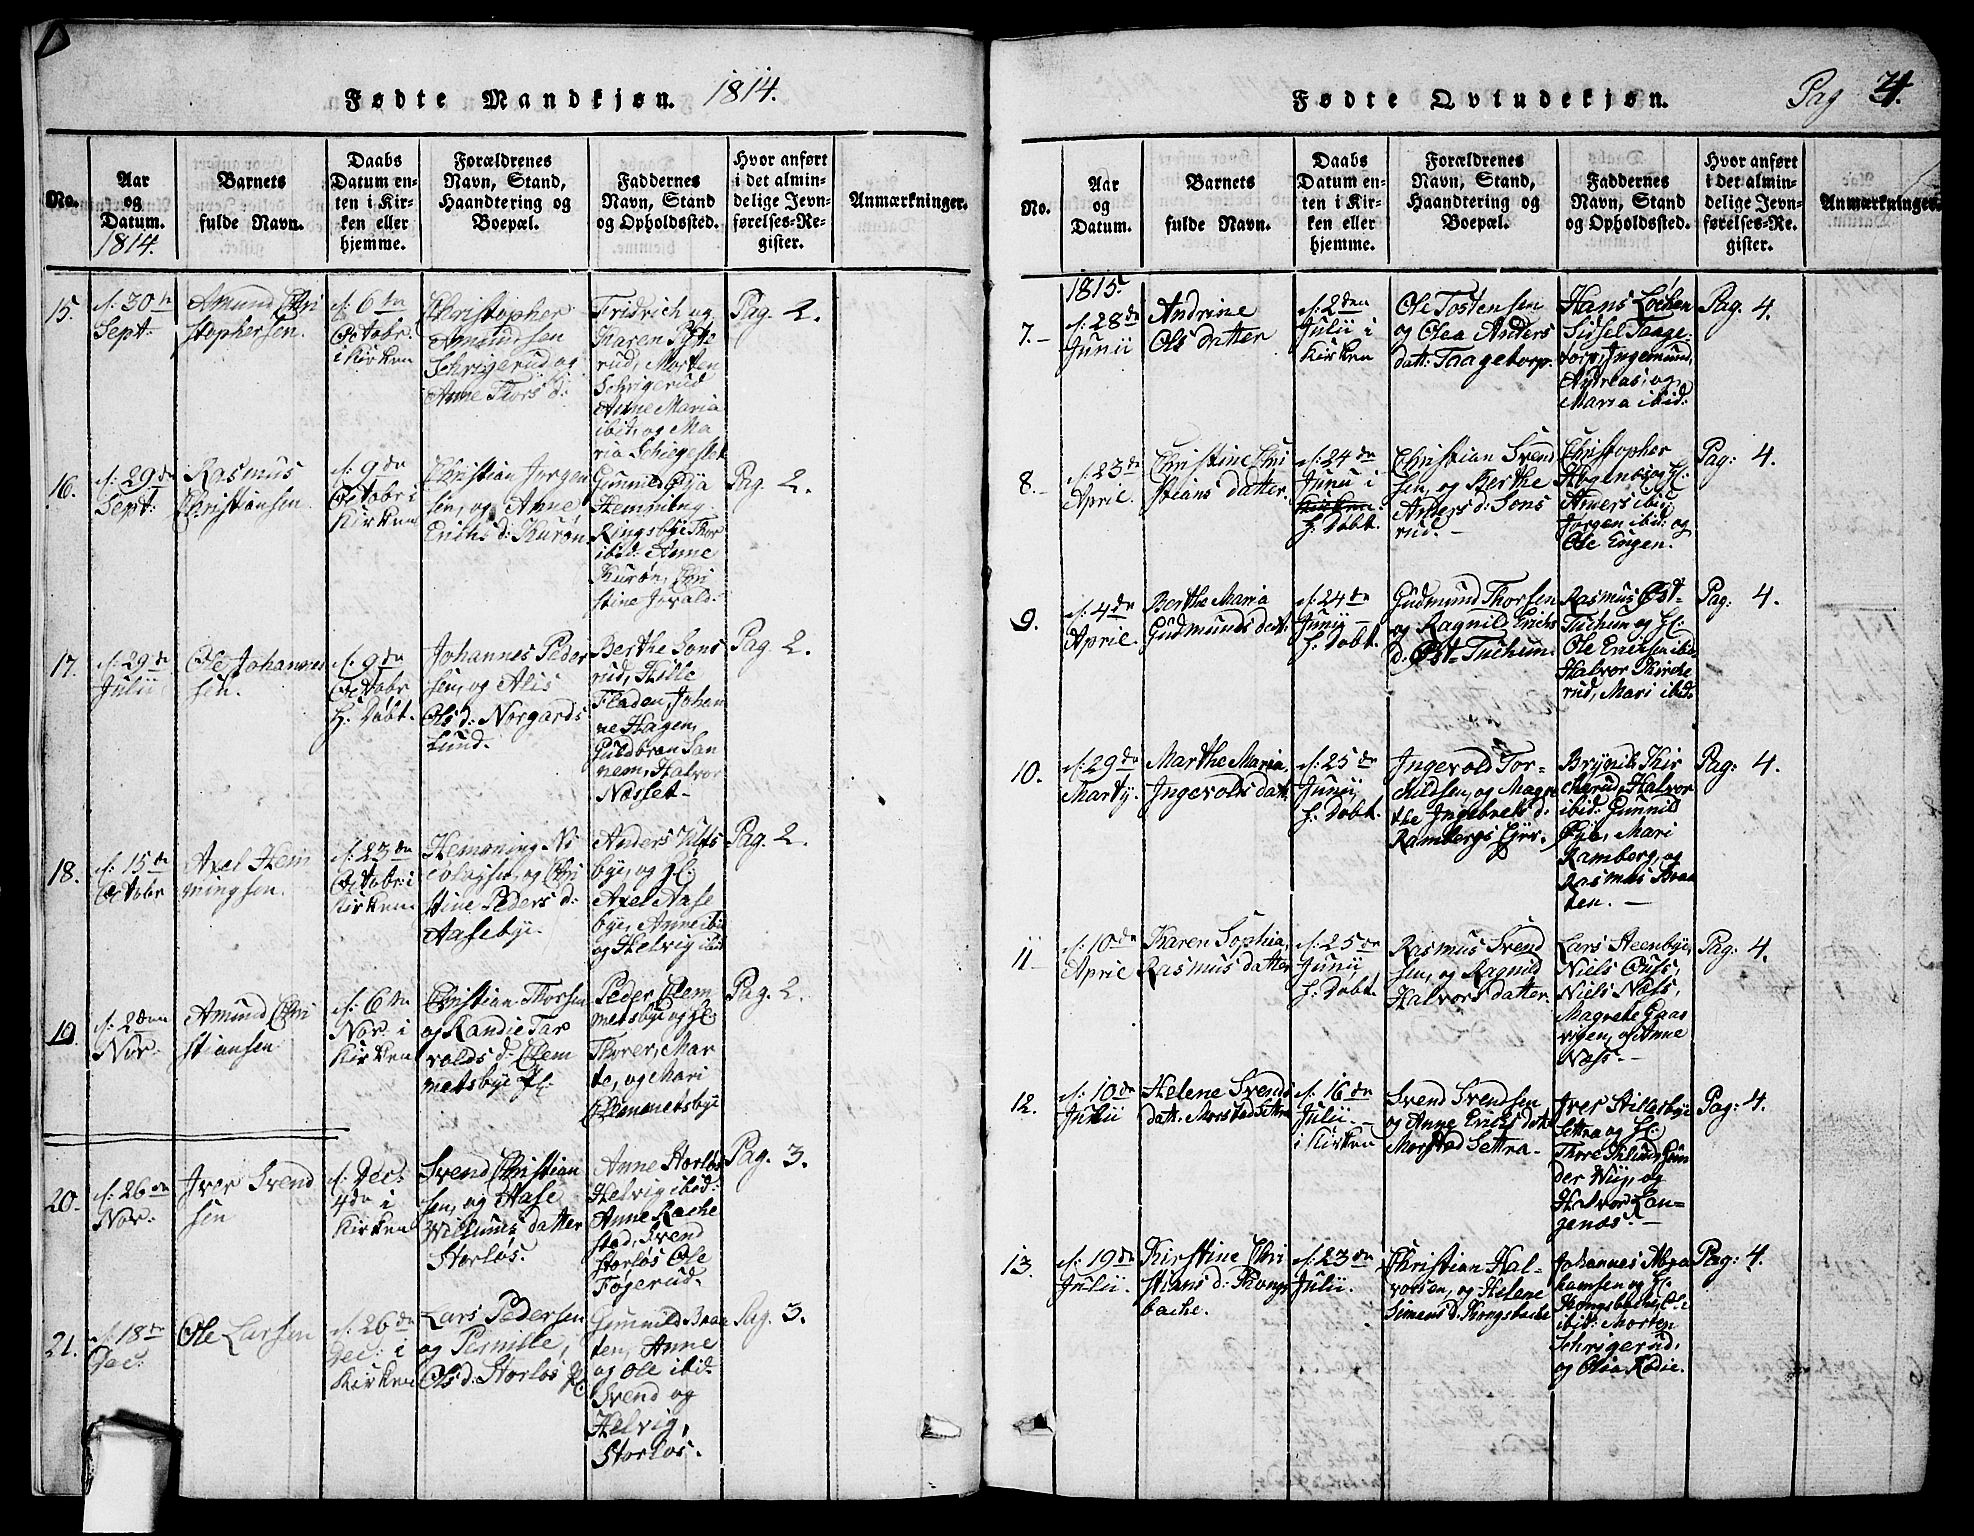 Fødte Mandkjøn. 1814.
No.
Aar
og
Datum.
1814.
Barnets
fulde Navn.
Daabs
Datum en-
ten i Kir-
ken eller
hjemme.
Forældrenes
Navn, Stand,
Haandtering og
Boepæl.
Faddernes
Navn, Stand
og Opholdssted.
Hvor anført
i det almin-
delige Jevn-
førelses-Re-
gister.
Anmærkninger.
15.
d. 30te
Sept:
Amund Chri
stophersen.
d. 6te
Octobr.
i Kirken
Christopher
Amundsen
Schrigerud og
Anne Thors d:
Fridrich og
Karen
rud, Morten
Schrigerud
Anne Maria
ibid, og Ma
ria
Pag. 2.
16.
d. 29de
Sept:
Rasmus
Christiansen.
d. 9de
Octobr i
Kirken
Christian Jorgen
sen, og Anne
Erichs d: Kurøn
Gunnil Øya
Hemming
Ringsbye Thor
ibid: Anne
Kurøn, Chri
stine
Pag. 2.
17.
d. 29de
Julii
Ole Johannes
sen.
d. 9de
Octobr
H: Døbt.
Johannes Peder
sen, og Alis
Ols d: Norgards
Lund.
Berthe Sons
rud, Kille
Fladen, Johan
ne Hagen,
Guldbran San
nem, Halvor
Næsset
Pag. 2.
18.
d. 15de
Octobr
Axel Hem
mingsen.
d. 23de
Octobr: i
Kirken
Hemming Ni
colajsen, og Chri
stine Peders d:
Aasebye.
Anders
bye, og H:
Axel Aase
bye, Anne ibid
og Helvig ibid
Pag. 2.
19.
d. 2den
Nov:
Amund Chri
stiansen
d. 6te
Nov: i
Kirken
Christian Thorsen
og Randie Tar
valds d: Clem
metsbye H:
Peder Clem
metsbye og H:
Thorer, Mar
te, og Mari
Clemmetsbye
Pag. 2.
20.
d. 26de
Nov:
Iver Svend
sen
d. Dec:
4de i
Kirken
Svend Christian
sen, og Aase
Willums datter
Storløs.
Anne Storløs
Helvig ibid:
Anne Rache
stad, Svend
Storløs Ole
Fogerud.
Pag. 3.
21.
d. 18de
Dec:
Ole Larsen
d. 26de
Dec: i
Kirken
Lars Pedersen
og Pernille,
Ols d: Storløs H:
Gunnild Braa
ten, Anne
og Ole ibid:
Svend og
Helvig,
Storløs.
Pag. 3.
Fødte Qvindekjøn. Pag 4.
No.
Aar
og
Datum.
Barnets
fulde Navn.
Daabs
Datum en-
ten i Kir-
ken eller
hjemme.
Forældrenes
Navn, Stand,
Haandtering og
Boepæl.
Faddernes
Navn, Stand
og Opholdssted.
Hvor anført
i det almin-
delige Jevn-
førelses-Re-
gister.
Anmærkninger.
1815.
7.
d. 28de
Junii
Andrine
Ols datter
d. 2den
Julii i
Kirken
Ole Tostensen
og Olea Anders
datt: Taagetorp.
Hans Løchen
Sidsel Taage
torp, Ingemund,
Andreas, og
Maria ibid:
Pag. 4.
8.
d. 23de
April
Christine Chri
stians datter.
d. 24de
Junii i
Kirken
H: Døbt.
Christian Svend
sen, og Berthe
Anders d: Sons
rud.
Christopher
Hogenbø og H:
Anners ibid:
Jorgen ibid: og
Ole Engen.
Pag: 4.
9.
d. 4de
April
Berthe Maria
Gudmunds datt:
d. 24de
Junij
H: Døbt.
Gudmund Thorsen
og Ragnild Erichs
d: Øst-Tuchun.
Rasmus Øst-
Tuchun og H:
Ole Erichsen ibid
Halvor Kirche
rud, Mari ibid:
Pag: 4.
10.
d. 29de
Martij.
Marthe Maria
Ingevolds datt:
d. 25de
Junij
H: Døbt.
Ingevold Tor-
childsen, og Magre
the Ingebrets d:
Rambergs Ejer.
Brynil Kir
cherud, Halvor
ibid: Gunnild
Øye, Mari
Ramberg, og
Rasmus Braa
ten.
Pag: 4.
11
d. 10de
April
Karen Sophia,
Rasmus datter
d. 25de
Junii,
H: Døbt.
Rasmus Svend
sen, og Ragnild
Halvors datter.
Lars Steenbye,
Niels Ouss,
Niels Næss,
Magrete Gaas
vigen, og Anne
Næss.
Pag: 4.
12.
d. 10de
Julii
Helene Svends
datt: Morstad Settra
d. 16de
Julii
i Kirken
Svend Svendsen
og Anne Erichs datt:
Morstad Settra.
Iver Stillesbye
Settra og H:
Thore
der Nuj, og
Halvor Lan-
genæs.
Pag: 4.
13.
d. 19de
Julii
Kirstine Chri
stians d: Kongs
bache.
d. 23de
Julii.
Christian Hal-
vorsen, og Helene
Simens d: Kongsbache
Johannes Abra
hamsen og H:
Kongsbache, Ole
ibid: Morten
Schrigerud,
og Olia Rødie.
Pag: 4.